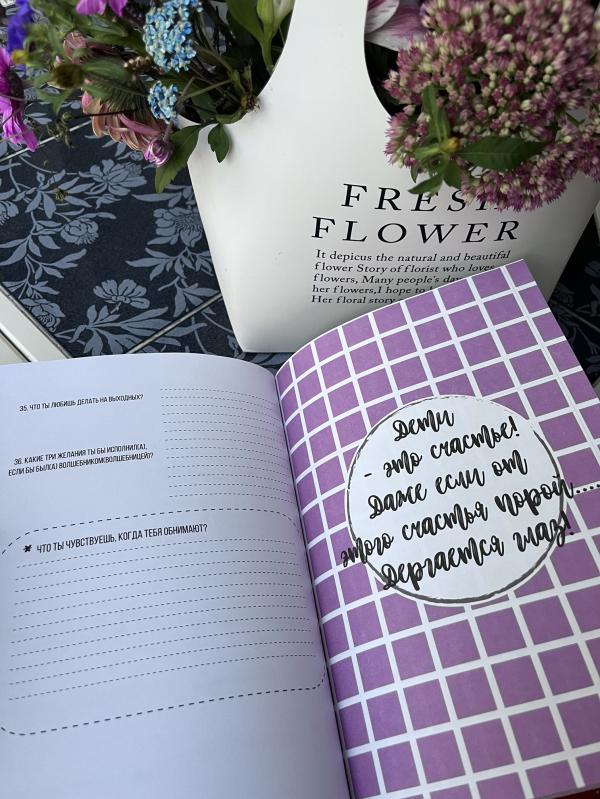 FRESH
FLOWER
It depicus the natural and beautiful
flower Story of florist who loves
flowers, Many people's
her flowers,I hope to
Her floral story
35. ЧТО ТЫ ЛЮБИШЬ ДЕЛАТЬ НА ВЫХОДНЫХ?
36. КАКИЕ ТРИ ЖЕЛАНИЯ ТЫ БЫ ИСПОЛНИЛ(А),
ЕСЛИ БЫ БЫЛ(А) ВОЛШЕБНИКОМ(ВОЛШЕБНИЦЕЙ)?
* ЧТО ТЫ ЧУВСТВУЕШЬ, КОГДА ТЕБЯ ОБНИМАЮТ?
Дети
- это счастье!
Даже если от
этого счастья порой....
Дергается глаз!